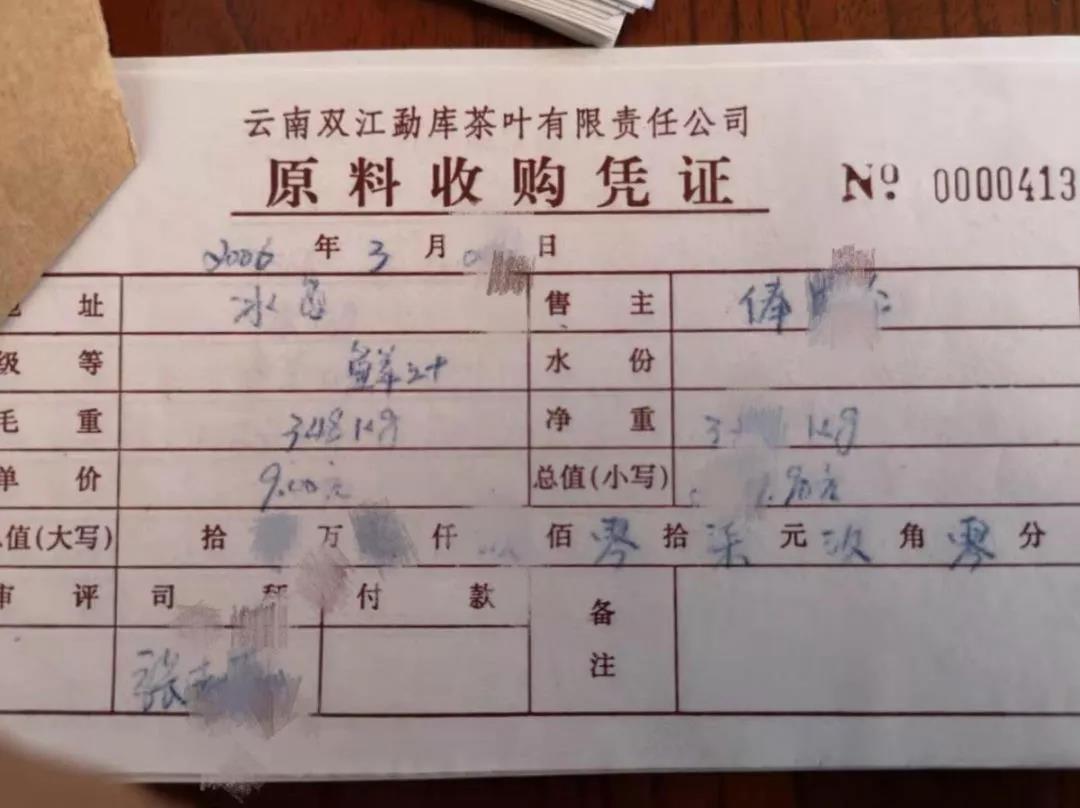 云南双江勐库茶叶有限责任公司
原料收购凭证 Nº 0000413
2006年3月 日
址 冰岛 售主 俸
级等 鲜叶 水份
毛重 348kg 净重 3 kg
单价 9.00元 总值(小写) .90元
值(大写) 拾 万 仟 佰零拾柒元玖角零分
审评 司 付款 备注
张